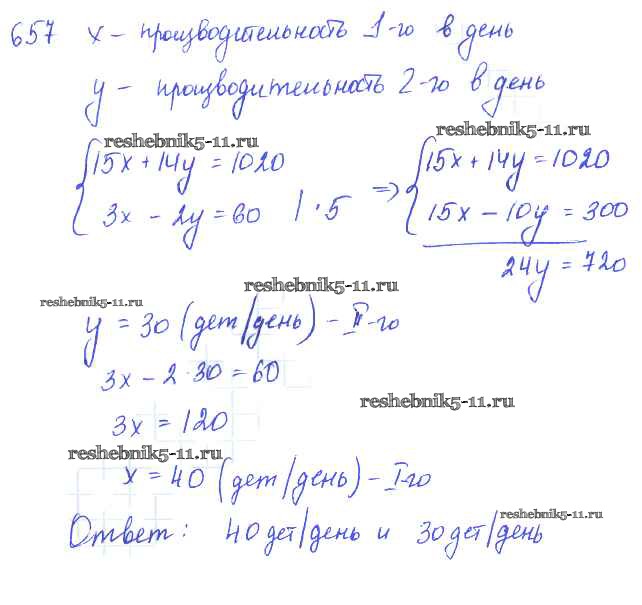 657 x – производительность 1-го в день
y – производительность 2-го в день
reshebnik5-11.ru
reshebnik5-11.ru
{15x + 14y = 1020
3x – 2y = 60 | · 5
=> {15x + 14y = 1020
15x – 10y = 300
24y = 720
reshebnik5-11.ru
reshebnik5-11.ru
y = 30 (дет/день) – II-го
3x – 2 · 30 = 60
3x = 120
reshebnik5-11.ru
reshebnik5-11.ru
x = 40 (дет/день) – I-го
reshebnik5-11.ru
Ответ: 40 дет/день и 30 дет/день